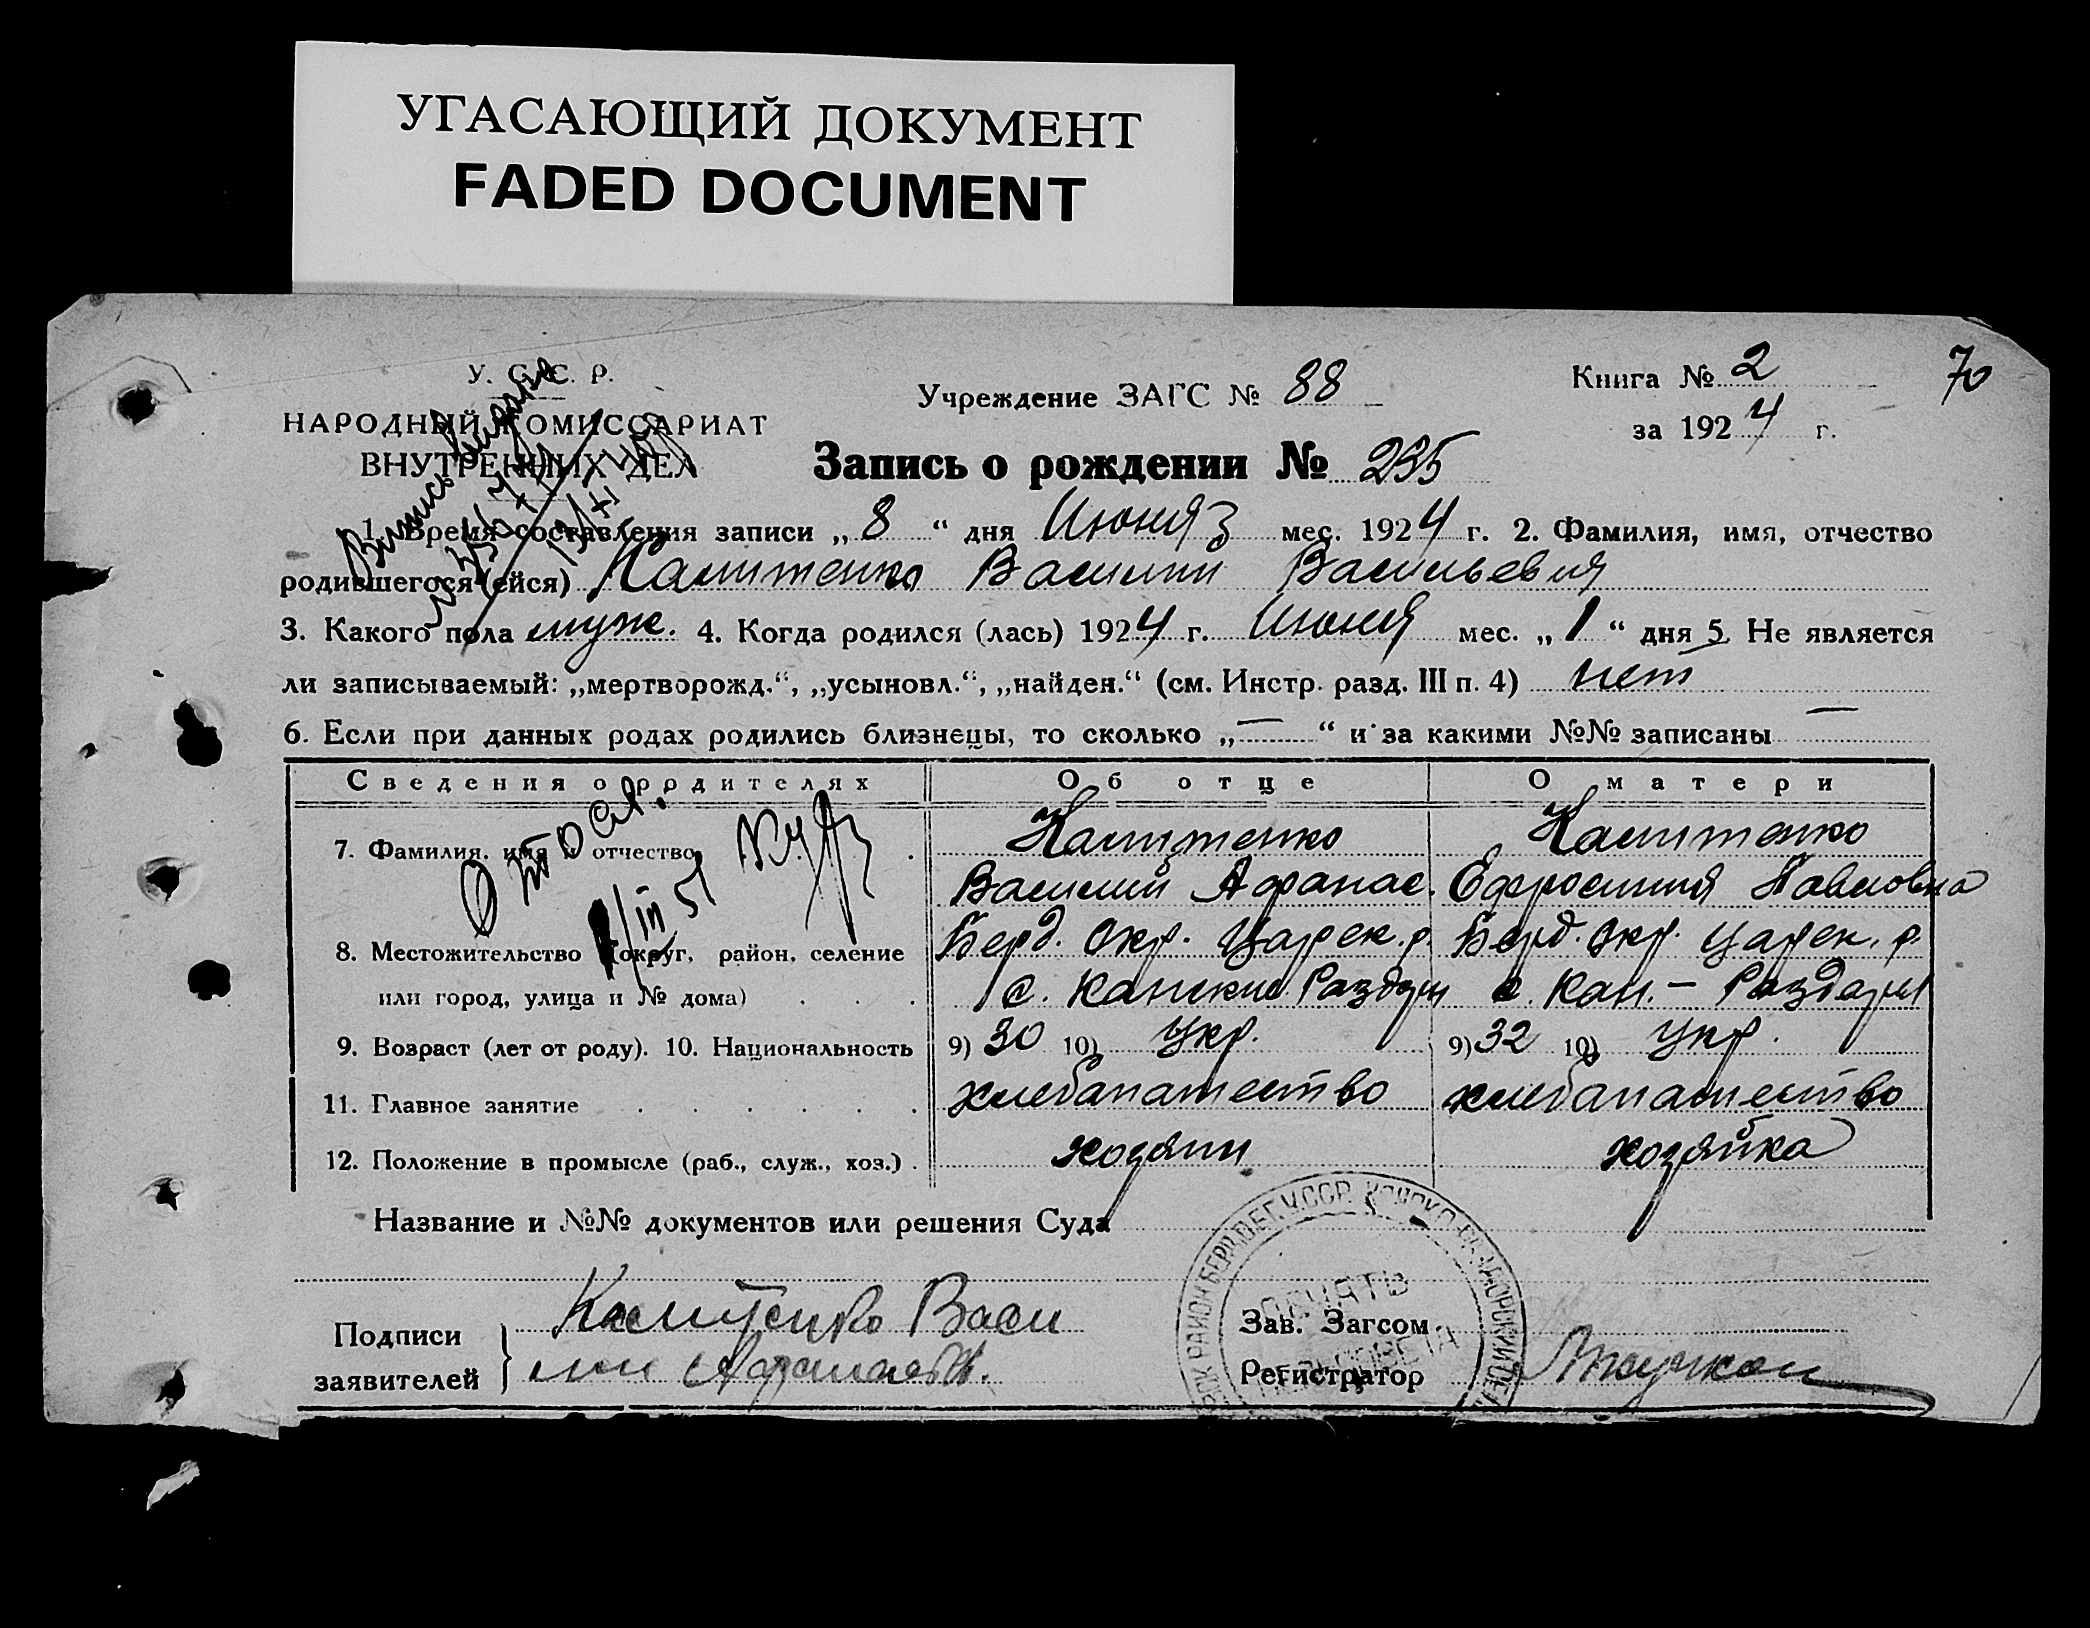 УГАСАЮЩИЙ ДОКУМЕНТ
FADED DOCUMENT
У. С. С. Р.
НАРОДНЫЙ КОМИССАРИАТ
ВНУТРЕННИХ ДЕЛ
Учреждение ЗАГС № 88
Книга № 2
70
за 1924 г.
Запись о рождении № 235
1. Время составления записи „ 8 “ дня Июня мес. 1924 г. 2. Фамилия, имя, отчество
родившегося (ейся) Василий Васильевич
3. Какого пола муж. 4. Когда родился (лась) 1924 г. Июня мес. „ 1 “ дня 5. Не является
ли записываемый: „мертворожд.“, „усыновл.“, „найден.“ (см. Инстр. разд. III п. 4) нет
6. Если при данных родах родились близнецы, то сколько „ — “ и за какими №№ записаны —
Сведения о родителях Об отце О матери
7. Фамилия, имя и отчество
Василий Афанас. Ефросиния Павловна
8. Местожительство (округ, район, селение Берд. Окр. Царек. р. Берд. Окр. Царек. р.
или город, улица и № дома) с. Канские Раздоры с. Кан.- Раздоры
9. Возраст (лет от роду). 10. Национальность 9) 30 10) Укр. 9) 32 10) Укр.
11. Главное занятие хлебапашество хлебапашество
12. Положение в промысле (раб., служ., хоз.) хозяин хозяйка
Название и №№ документов или решения Суда
Подписи
заявителей
Васи
лий Афанасьев.
Зав. Загсом
Регистратор
ПЕЧАТЬ